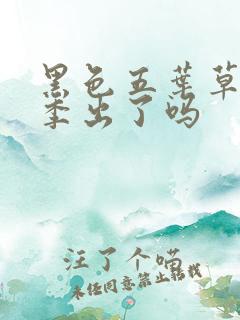 黑色五葉草
季出了吗
汪了个喵
未经同意禁止转载